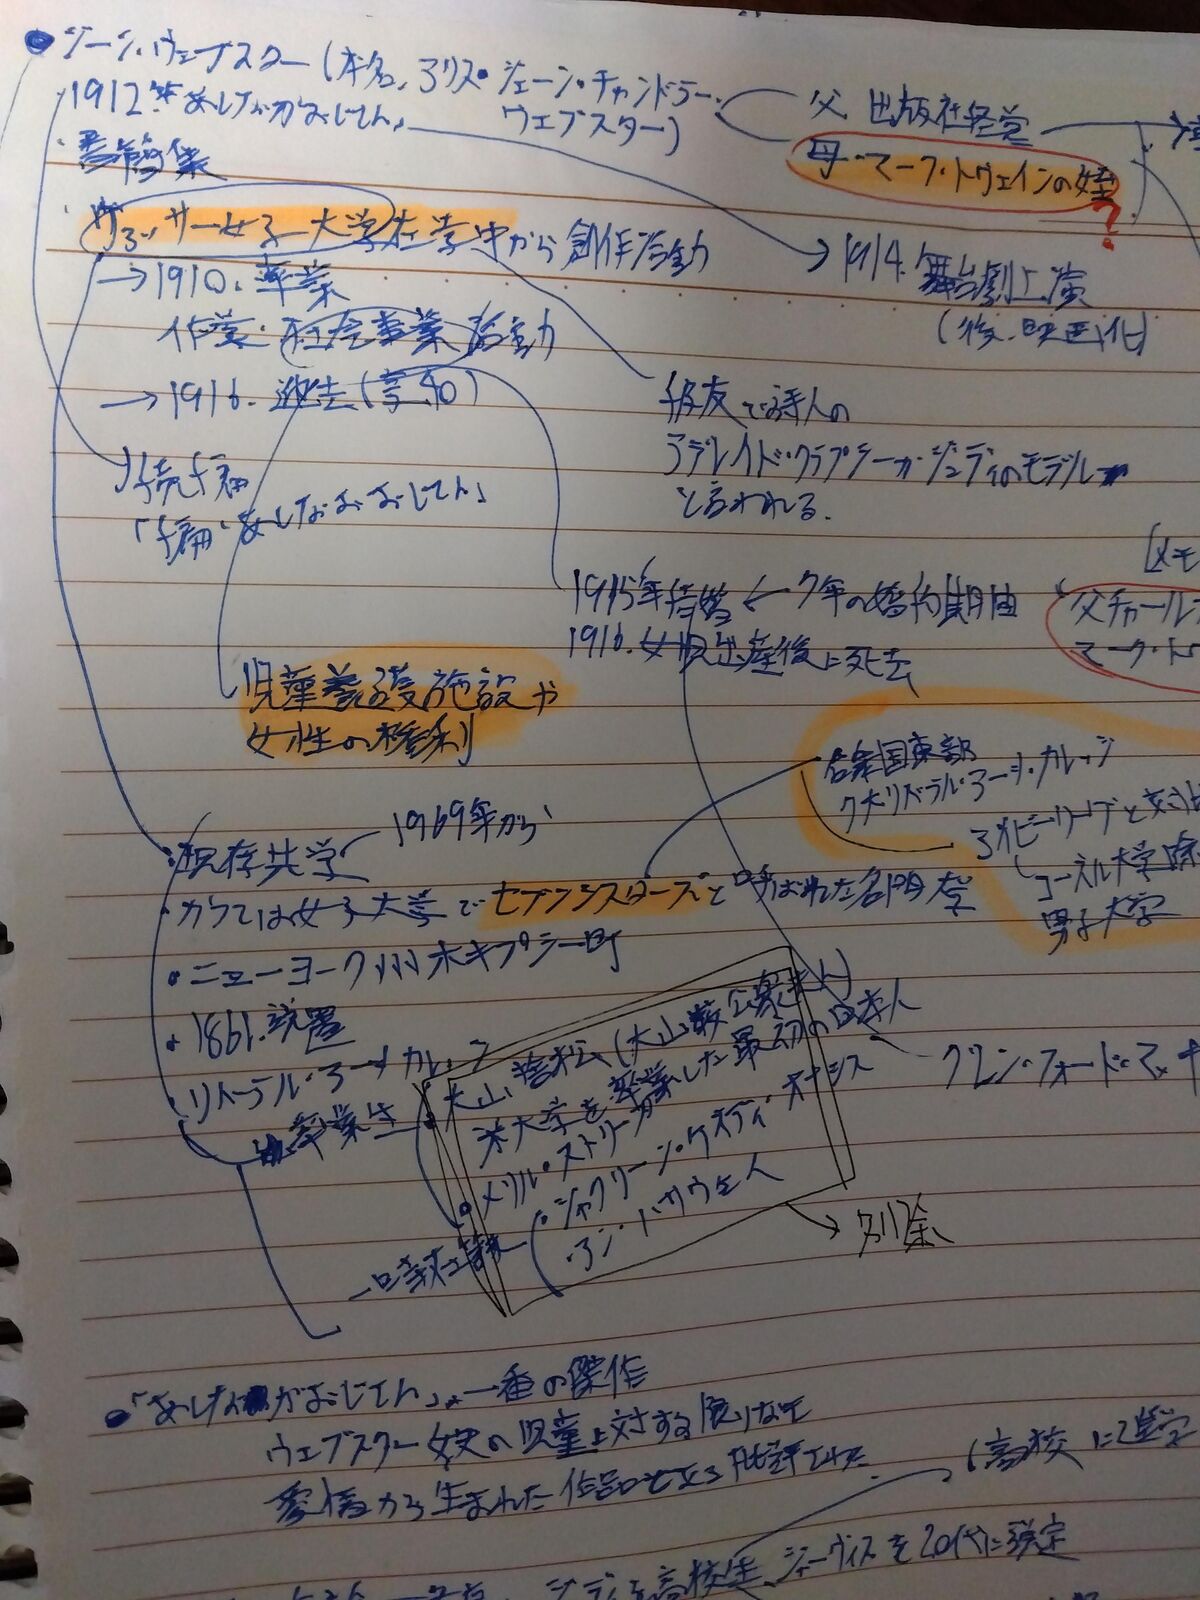 ジーン・ウェブスター(本名、アリス・ジェーン・チャンドラー・
ウェブスター)
父 出版社経営
母・マーク・トウェインの姪
?
1912年「あしながおじさん」
書簡集
女子大学在学中から創作活動
→1910. 卒業
→1914. 舞台劇上演
(後、映画化)
作営・社会事業活動
→1916. 逝去(享40)
級友で詩人の
アデレイド・クラプシーがジュディのモデル
と言われる.
続編
「続・あしながおじさん」
1915年結婚 ← 7年の婚約期間
1916. 女児出産後に死去
[メモ
父チャールズ
マーク・ト
児童養護施設や
女性の権利
合衆国東部
リベラル・アーツ・カレッジ
アイビーリーグと
コーネル大学除
男子大学
現在共学
1969年から
かつては女子大学でセブンシスターズと呼ばれた名門大学
ニューヨーク州ポキプシー町
1861. 設置
リベラル・アーツカレッジ
卒業生
大山捨松(大山巌公爵夫人)
米大学を卒業した最初の日本人
メリル・ストリープ
ジャクリーン・ケネディ オナシス
アン・ハサウェイ
一時在籍
→ 削除
グレン・フォード・マッキ
「あしながおじさん」、一番の傑作
ウェブスター女史の児童に対する限りなき
愛情から生まれた作品である 批評された
(高校に進学
ジュディを高校生、ジャーヴィスを20代に設定